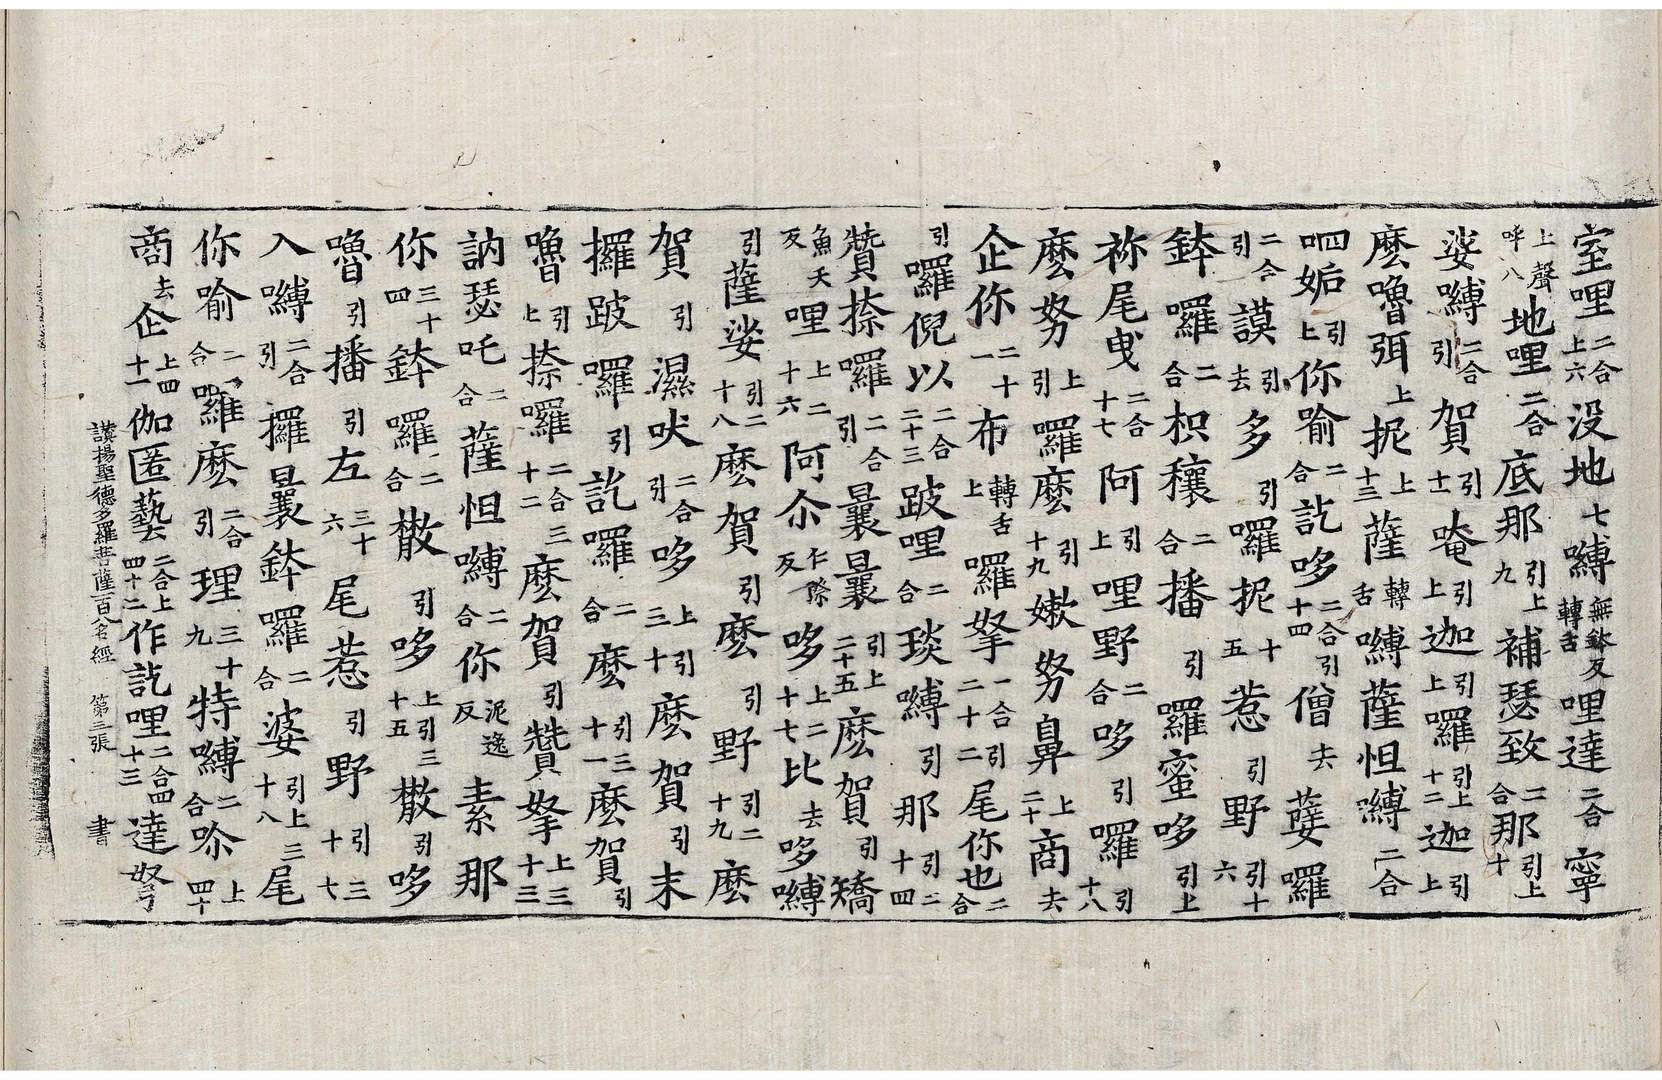 室哩二合上六没地七嚩無鉢反轉舌哩達二合寧
上聲呼八地哩二合底那引上九補瑟致二合那引上十
娑嚩二合引賀引十一唵引上迦引上囉引上十二迦引上
麽嚕弭上抳上十三薩轉舌嚩薩怛嚩二合
呬姤引上你喻二合訖哆二合引十四僧去蘖囉
二合引謨引去多引囉抳十五惹引野引十六
鉢囉二合枳穰二合播引囉蜜哆引上
祢尾曳二合十七阿引上哩野二合哆引囉引十八
麽努上引囉麽引十九嫰努鼻上二十商去
企你二十一布轉舌上囉拏一合引二十二尾你也二合
引囉倪以二合二十三跛哩二合琰嚩引那引二十四
贊捺囉二合引曩曩引上二十五麽賀引矯
魚夭反哩上二十六阿尒仁際反哆上二十七比去哆嚩
引薩娑引二十八麽賀引麽引野引二十九麽
賀引濕吠二合引哆上引三十麽賀引末
攞跛囉引訖囉二合麽引三十一麽賀引
嚕引上捺囉二合三十二麽賀引贊拏上三十三
訥瑟吒二合薩怛嚩二合你泥逸反素那
你三十四鉢囉二合㪚引哆上引三十五㪚引哆
嚕引播引左三十六尾惹引野引三十七
入嚩二合引攞曩鉢囉二合娑引上三十八尾
你喻二合囉麽二合引理三十九特嚩二合吤上四十
商去企上四十一伽匿藝二合上四十二作訖哩二合四十三達弩
讃揚聖德多羅菩薩百八名經　第三張　書